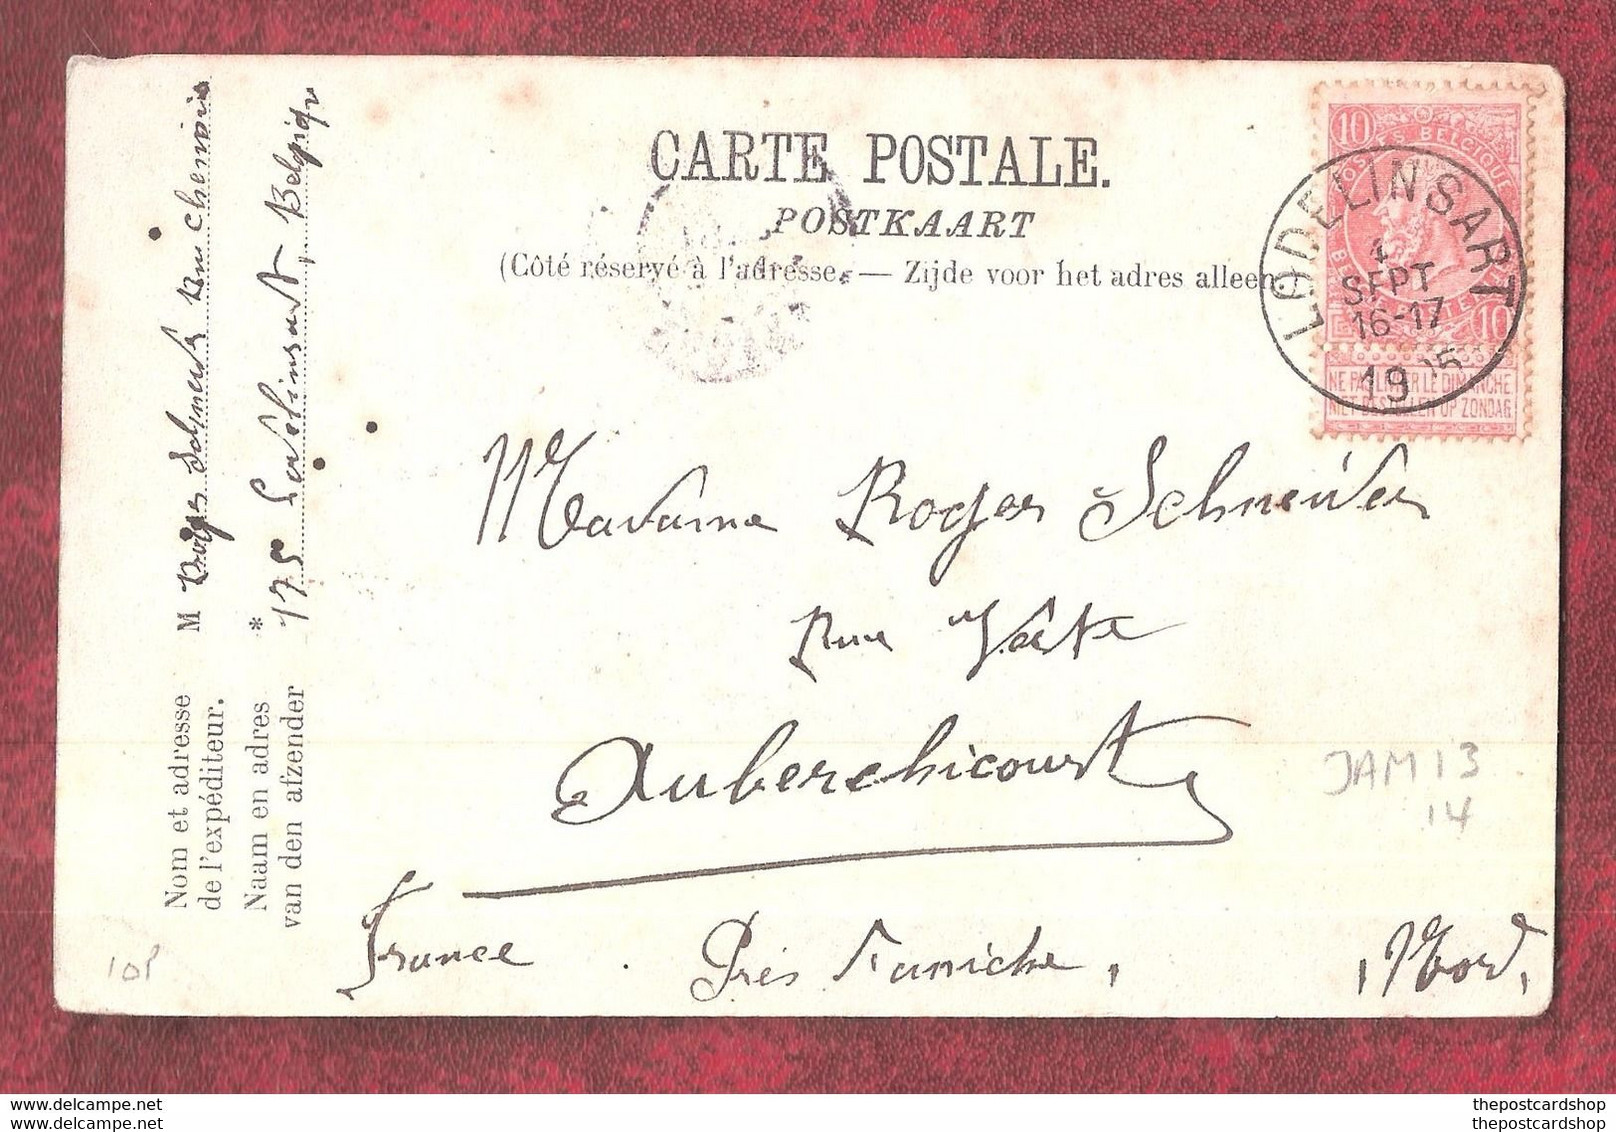 CARTE POSTALE.
POSTKAART
(Côté réservé à l'adresse. — Zijde voor het adres alleen.)
10 POSTES BELGIQUE 10
NE PAS LIVRER LE DIMANCHE
NIET BESTELLEN OP ZONDAG
LODELINSART
4
SEPT
16-17
1905
Madame Roger Schneider
Rue
Auberchicourt
France. Près Saniche, (Nord)
JAM 13
14
10P
Nom et adresse
de l'expéditeur.
Naam en adres
van den afzender
M Roger Schneider Rue
* 175 Lodelinsart, Belgique
thepostcardshop
thepostcardshop
www.delcampe.net
www.delcampe.net